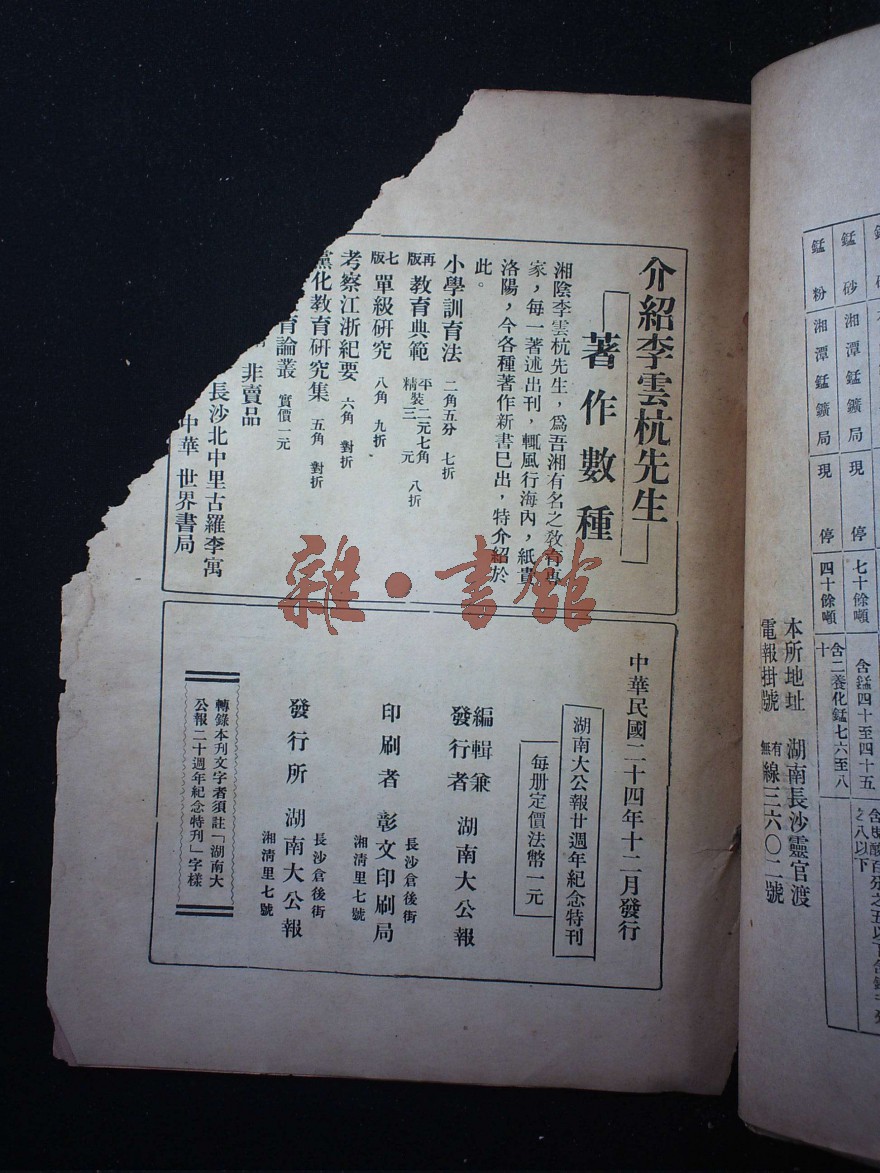 錳砂 湘潭錳鑛局 現停 七十餘噸 含錳四十至四十五
錳粉 湘潭錳鑛局 現停 四十餘噸 含二養化錳七六至八十
本所地址 湖南長沙靈官渡
電報掛號 有無線三六〇二號
介紹李雲杭先生
著作數種
湘陰李雲杭先生，爲吾湘有名之敎育專
家，每一著述出刊，輒風行海內，紙貴
洛陽，今各種著作新書已出，特介紹於
此。
小學訓育法 二角五分 七折
再版 教育典範 平裝二元七角 精裝三元 八折
七版 單級研究 八角 九折
考察江浙紀要 六角 對折
黨化教育研究集 五角 對折
育論叢 實價一元
非賣品
長沙北中里古羅李寓
中華 世界書局
中華民國二十四年十二月發行
湖南大公報廿週年紀念特刊
每册定價法幣一元
編輯兼發行者 湖南大公報
印刷者 彰文印刷局 長沙倉後街湘清里七號
發行所 湖南大公報 長沙倉後街湘清里七號
轉錄本刊文字者須註「湖南大
公報二十週年紀念特刊」字樣
雜·書館